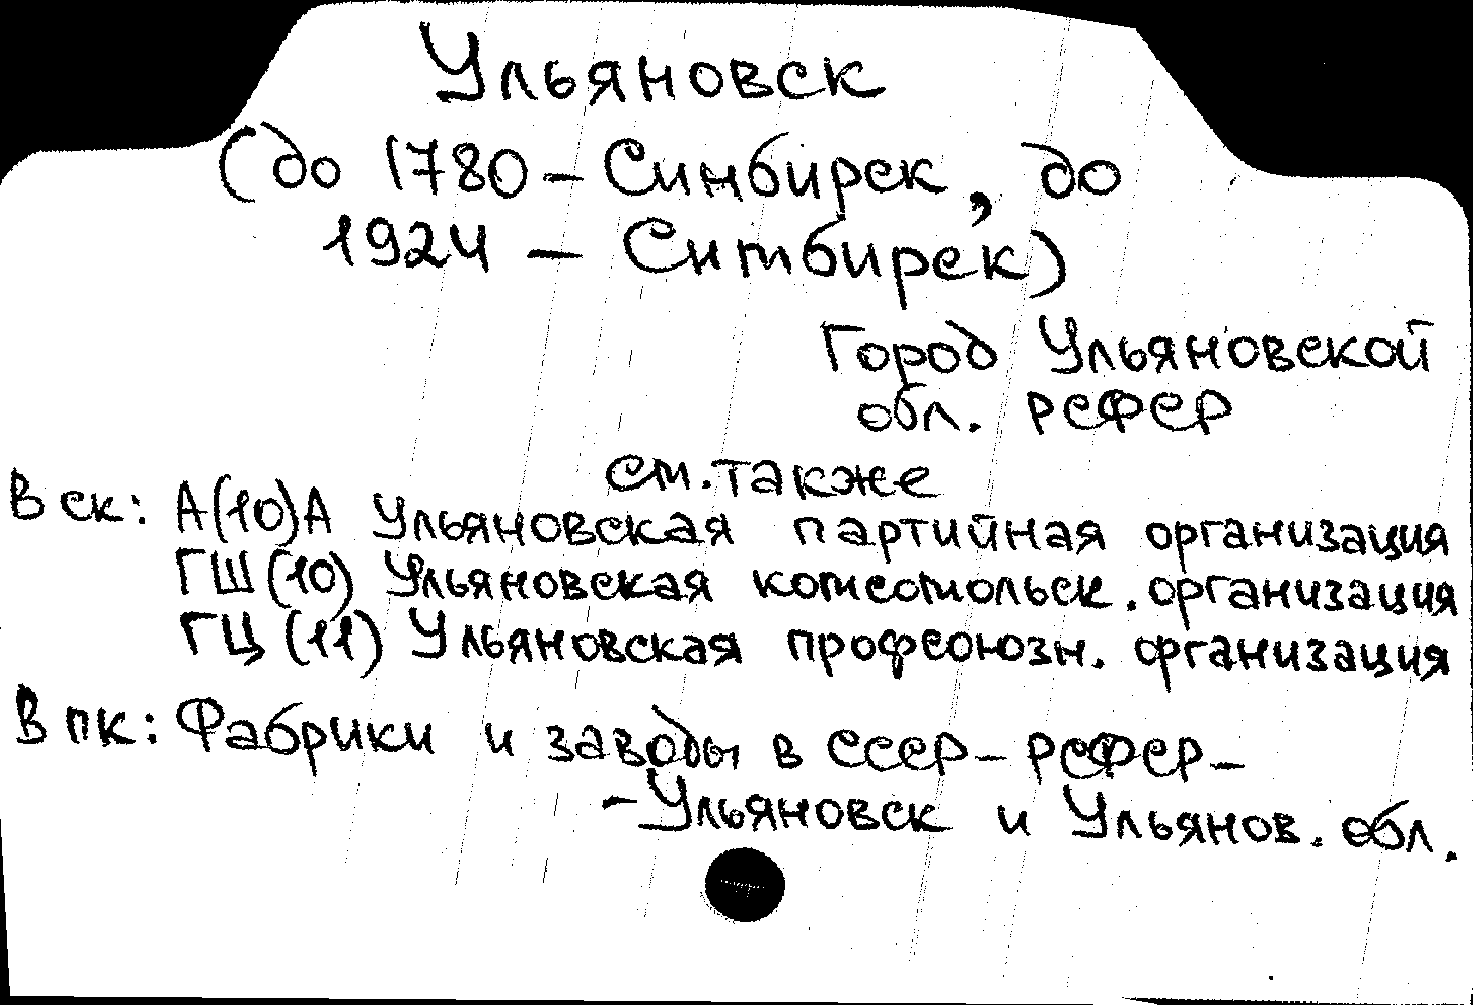 Ульяновск
(до 1780 – Синбирск, до
1924 – Симбирск)
Город Ульяновской
обл. РСФСР
см. также
В ск: А(10)А Ульяновская партийная организация
ГШ(10) Ульяновская комсомольск. организация
ГЦ(11) Ульяновская профсоюзн. организация
В пк: Фабрики и заводы в СССР – РСФСР –
– Ульяновск и Ульянов. обл.